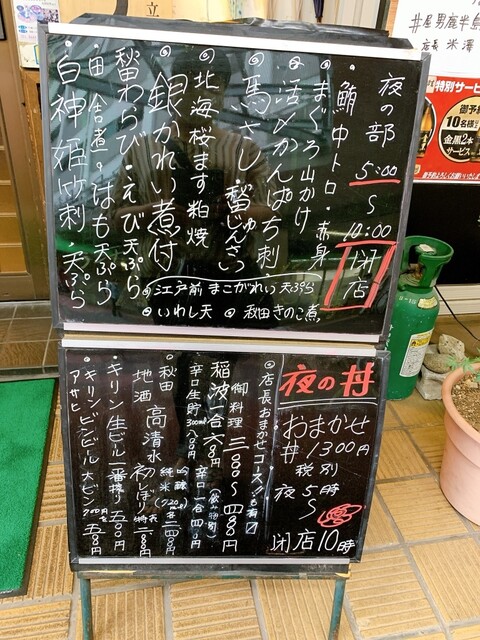 夜の部
5:00
〜
10:00
閉店
・鮪 中トロ・赤身
・まぐろ山かけ
◎活〆かんぱち刺
◎馬さし・秘伝じゅんさい
◎北海桜ます粕焼
◎銀かれい煮付
秋田わらび・えび天ぷら
・田舎煮・はも天ぷら
・白神姫竹刺・天ぷら
◎江戸前まこがれい天ぷら
◎いわし天 ◎秋田きのこ煮
夜の丼
おまかせ
丼1300円
税別
夜5時
〜
閉店10時
◎店長おまかせコース!!も有
御料理 三〇〇〇〜四〇〇〇円
稲波一合
辛口生貯300ml八〇〇円
・秋田
地酒 高清水
初しぼり
・キリン生ビール一番搾り五〇〇円
・キリンビンビール大ビン
アサヒ
特別サービス
御予約
10名様
金黒2本
サービス
井屋男鹿半島
店長 米澤